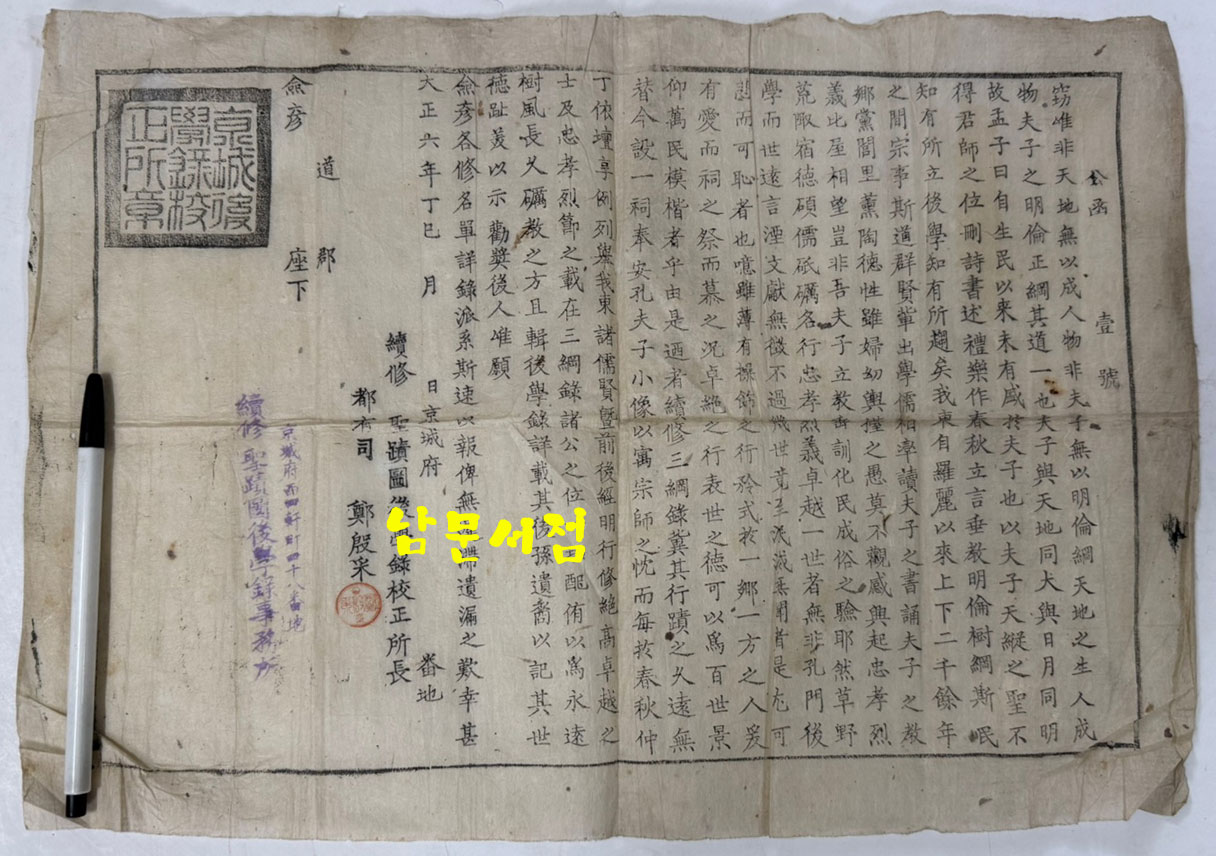 公函 壹號
窃惟非天地無以成人物非夫子無以明倫綱天地之生人成
物夫子之明倫正綱其道一也夫子與天地同大與日月同明
故孟子曰自生民以来未有盛於夫子也以夫子天縱之聖不
得君師之位刪詩書述禮樂作春秋立言垂教明倫樹綱斯民
知有所立後學知有所趨矣我東自羅麗以來上下二千餘年
之間宗事斯道群賢輩出學儒相率讀夫子之書誦夫子之教
鄉黨閭里薰陶德性雖婦幼輿擡之愚莫不觀感興起忠孝烈
義比屋相望豈非吾夫子立教垂訓化民成俗之驗耶然草野
荒陬宿德碩儒砥礪名行忠孝烈義卓越一世者無非孔門後
學而世遠言湮文獻無徵不過幾世竟至泯滅無聞者是尤可
悲而可恥者也噫雖薄有操飾之行矜式於一鄉一方之人爰
有愛而祠之祭而慕之況卓絶之行表世之德可以爲百世景
仰萬民模楷者乎由是迺者續修三綱錄冀其行蹟之久遠無
替今設一祠奉安孔夫子小像以寓宗師之忱而每於春秋仲
丁依壇享例列與我東諸儒賢曁前後經明行修絶高卓越之
士及忠孝烈節之載在三綱錄諸公之位配侑以爲永遠
樹風長久礪教之方且輯後學錄詳載其後孫遺裔以記其世
德趾美以示勸奬後人惟願
僉彥各修名單詳錄派系斯速以報俾無遺漏之歎幸甚
大正六年丁巳 月 日京城府 番地
續修 聖蹟圖後學錄校正所長
都有司 鄭殷采
道 郡
僉彥 座下
京城後
學錄校
正所章
京城府 四十八番地
續修 聖蹟圖後學錄事務所
남문서점